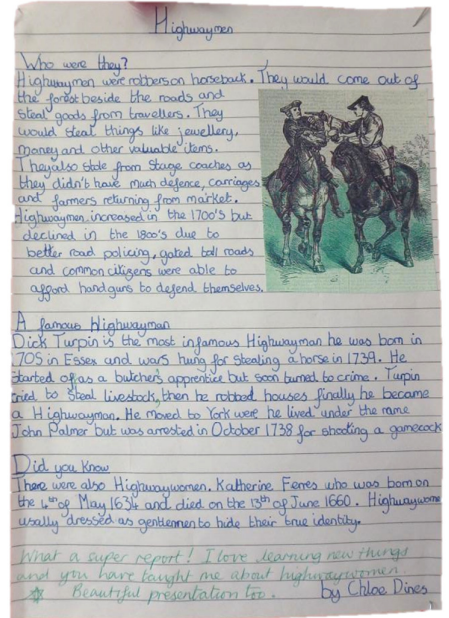 Highwaymen
Who were they?
Highwaymen were robbers on horseback. They would come out of
the forest beside the roads and
steal goods from travellers. They
would steal things like jewellery,
money and other valuable items.
They also stole from stage coaches as
they didn't have much defence, carriages
and farmers returning from market.
Highwaymen increased in the 1700's but
declined in the 1800's due to
better road policing, gated toll roads
and common citizens were able to
afford handguns to defend themselves.
A famous Highwayman
Dick Turpin is the most infamous Highwayman he was born in
1705 in Essex and wars hung for stealing a horse in 1739. He
started off as a butchers apprentice but soon turned to crime. Turpin
tried to steal livestock, then he robbed houses finally he became
a Highwayman. He moved to York were he lived under the name
John Palmer but was arrested in October 1738 for shooting a gamecock
Did you know
There were also Highwaywomen. Katherine Ferres who was born on
the 4th of May 1634 and died on the 13th of June 1660. Highwaywome
usally dressed as gentlemen to hide their true identity.
What a super report! I love learning new things
and you have taught me about highwaywomen.
Beautiful presentation too.
by Chloe Dines